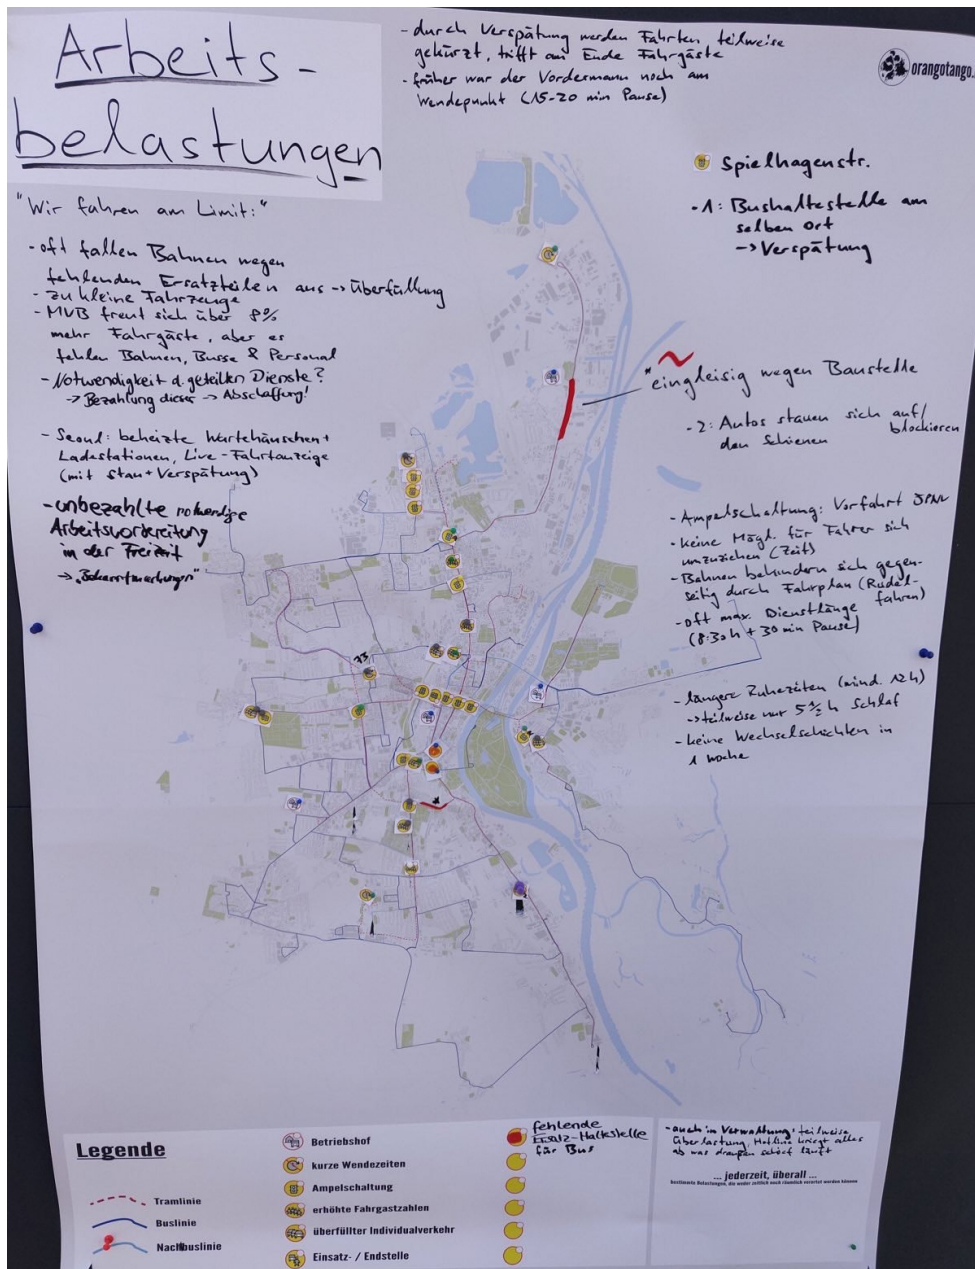 Arbeits-
belastungen
- durch Verspätung werden Fahrten teilweise
gekürzt, trifft am Ende Fahrgäste
- früher war der Vordermann noch am
Wendepunkt (15-20 min Pause)
orangotango
Spielhagenstr.
- 1: Bushaltestelle am
selben Ort
→ Verspätung
"Wir fahren am Limit:"
- oft fallen Bahnen wegen
fehlenden Ersatzteilen aus → Überfüllung
- zu kleine Fahrzeuge
- MVB freut sich über 8%
mehr Fahrgäste, aber es
fehlen Bahnen, Busse & Personal
- Notwendigkeit d. geteilten Dienste?
→ Bezahlung dieser → Abschaffung!
- Seoul: beheizte Wartehäuschen +
Ladestationen, Live-Fahrtanzeige
(mit Stau + Verspätung)
- unbezahlte notwendige
Arbeitsvorbereitung
in der Freizeit
eingleisig wegen Baustelle
- 2: Autos stauen sich auf/
blockieren
den Schienen
- Ampelschaltung: Vorfahrt ÖPNV
- keine Mögl. für Fahrer sich
umzuziehen (Zeit)
- Bahnen behindern sich gegen-
seitig durch Fahrplan (Rudel-
fahren)
- oft max. Dienstlänge
(8:30h + 30 min Pause)
- längere Ruhezeiten (mind. 12h)
→ teilweise nur 5 ½ h Schlaf
- keine Wechselschichten in
1 Woche
73
Legende
Tramlinie
Buslinie
Nachtbuslinie
Betriebshof
kurze Wendezeiten
Ampelschaltung
erhöhte Fahrgastzahlen
überfüllter Individualverkehr
Einsatz- / Endstelle
fehlende
Ersatz-Haltestelle
für Bus
- auch in Verwaltung: teilweise
Überlastung, Hotline kriegt alles
ab was draußen schief läuft
... jederzeit, überall ...
bestimmte Belastungen, die weder zeitlich noch räumlich verortet werden können